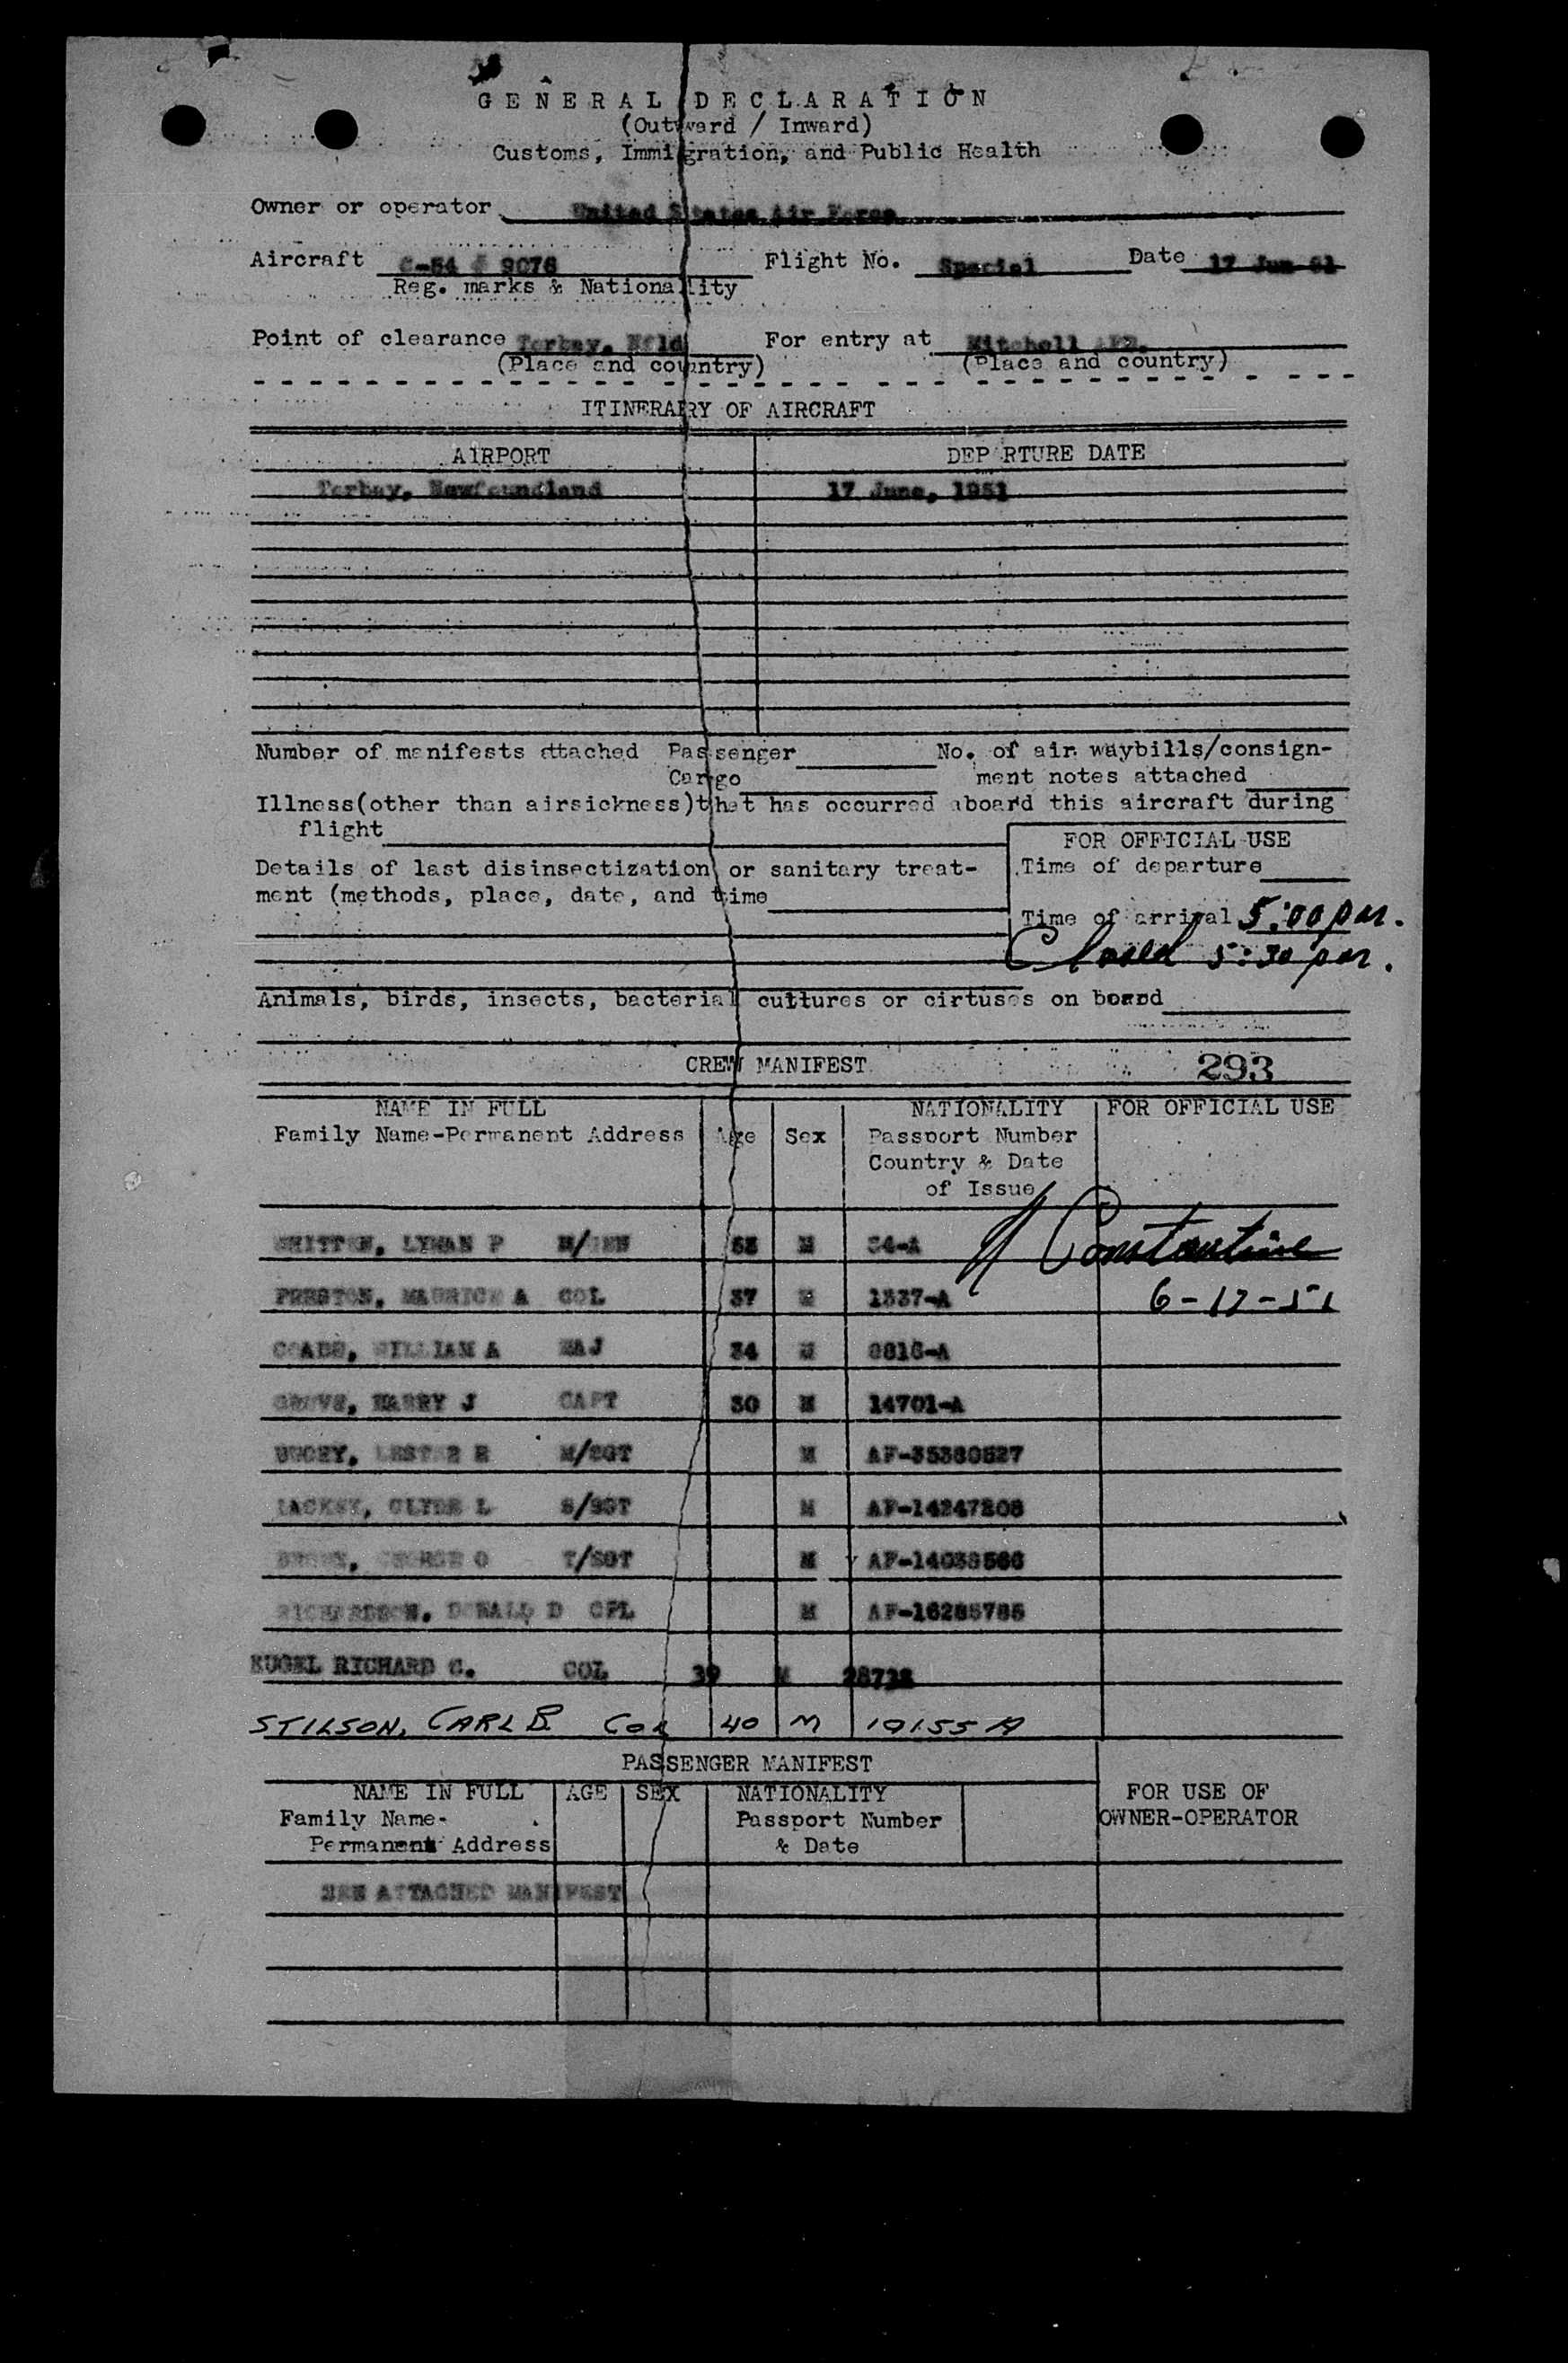 GENERAL DECLARATION
(Outward / Inward)
Customs, Immigration, and Public Health
Owner or operator United States Air Force
Aircraft C-54 # 9076 Flight No. Special Date 17 Jun 51
Reg. marks & Nationality
Point of clearance Torbay, Nfld For entry at Mitchell AFB.
(Place and country) (Place and country)
ITINERARY OF AIRCRAFT
AIRPORT DEP RTURE DATE
Torbay, Newfoundland 17 June, 1951
Number of manifests attached Passenger No. of air waybills/consign-
Cargo ment notes attached
Illness(other than airsickness)that has occurred aboard this aircraft during
flight
FOR OFFICIAL USE
Details of last disinsectization or sanitary treat- Time of departure
ment (methods, place, date, and time
Time of arrival 5:00 pm.
Closed 5:30 pm.
Animals, birds, insects, bacterial cultures or cirtuses on board
CREW MANIFEST 293
NAME IN FULL NATIONALITY FOR OFFICIAL USE
Family Name-Permanent Address Age Sex Passport Number
Country & Date
of Issue
WHITTEN, LYMAN P M/GEN 53 M 34-A Constantine
PRESTON, MAURICE A COL 37 M 1337-A 6-17-51
WILLIAM A MAJ 34 M 8816-A
HARRY J CAPT 30 M 14701-A
LESTER M/SGT M AF-35380527
CLYDE L S/SGT M AF-14247208
GEORGE O T/SGT M AF-14038566
RICHARDSON, DONALD D CPL M AF-16285785
KUGEL RICHARD C. COL 39 M 28738
STILSON, CARL B. COL 40 M 19155 A
PASSENGER MANIFEST
NAME IN FULL AGE SEX NATIONALITY FOR USE OF
Family Name- Passport Number OWNER-OPERATOR
Permanent Address & Date
SEE ATTACHED MANIFEST